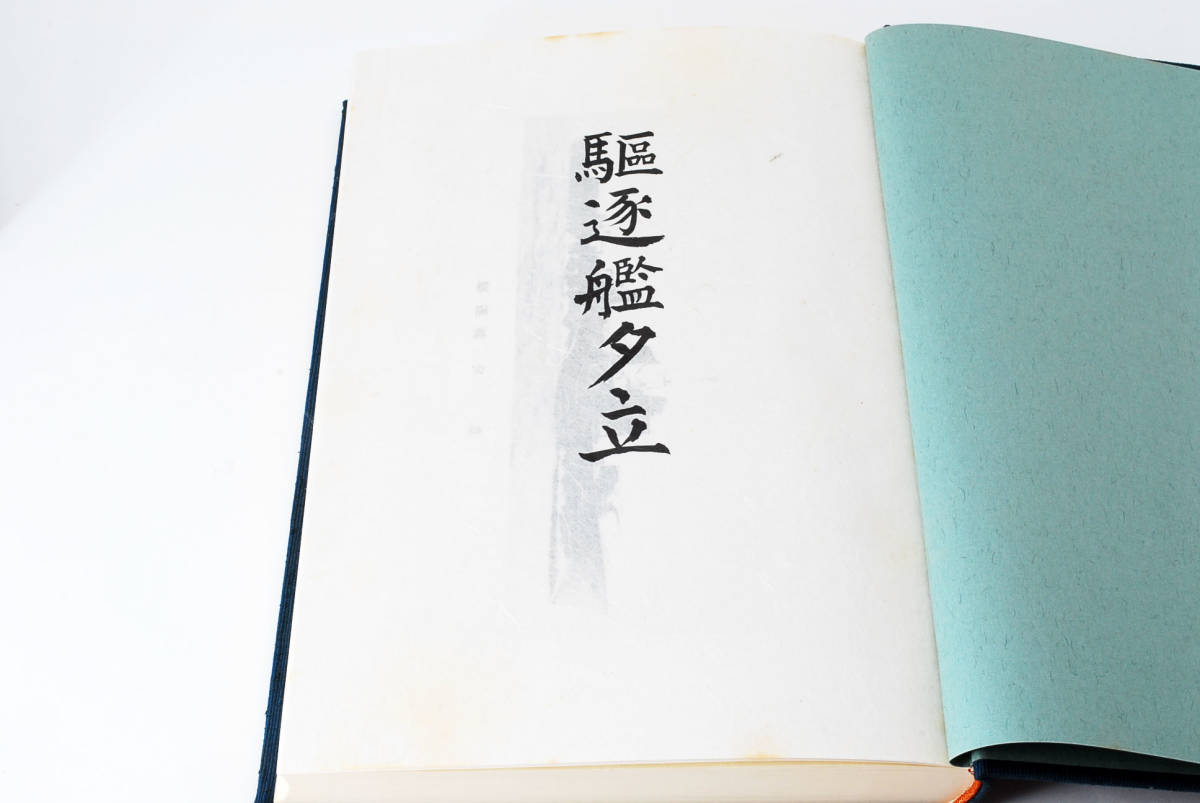 驅逐艦夕立